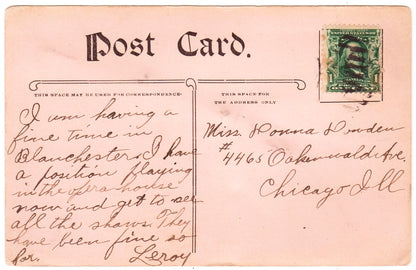 Post Card.
THIS SPACE MAY BE USED FOR CORRESPONDENCE.
THIS SPACE FOR
THE ADDRESS ONLY
I am having a
fine time in
Blanchester. I have
a position playing
in the opera house
now and get to see
all the shows. They
have been fine so
far. Leroy
Miss Donna
# 4465 Oakenwald Ave,
Chicago Ill